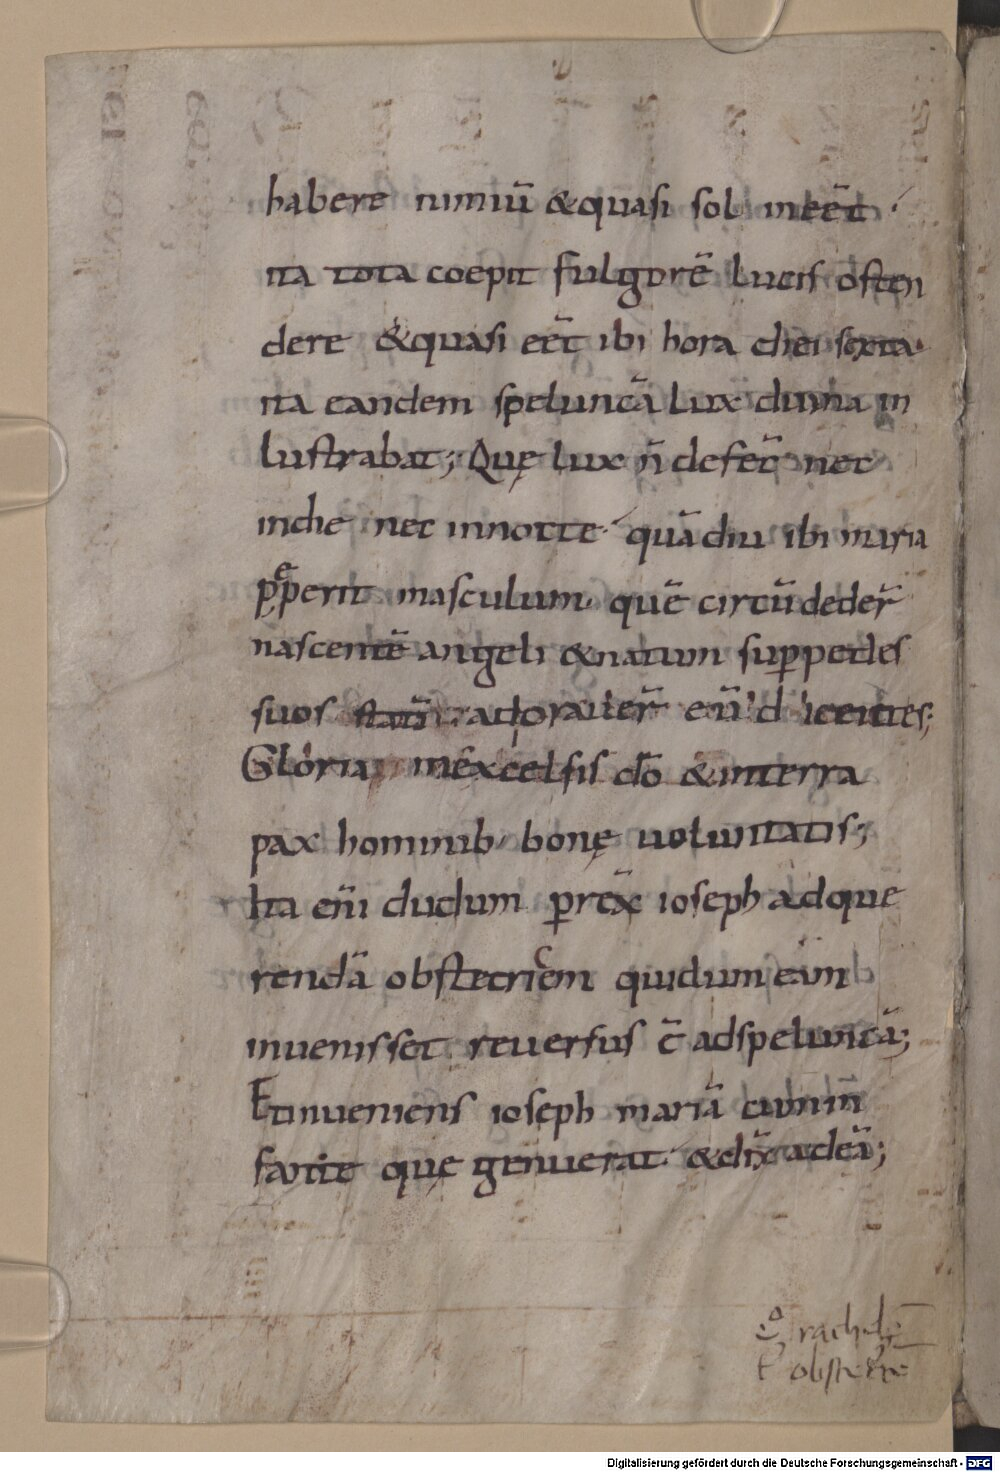 habere nimiū &quasi sol ineēt
ita tota coepit fulgorē lucis osten
dere &quasi eēt ibi hora diei sexta.
ita eandem speluncā lux diuina in
lustrabat; Quę lux n̄ defec̄ nec
indie nec innocte quādiu ibi maria
peperit masculum. quē circūdeder̄
nascentē angeli &natum suppedes
suos statī adorauer̄ eū dicentes;
Gloria inexcelsis dō &interra
pax hominib; bonę uoluntatis;
Ita eni dudum prēx ioseph adque
rendā obstetricem quidum eam
inuenisset reuersus ē adspeluncā;
Etinueniens ioseph mariā cumin
fante quę genuerat. &dix̄ adeā;
rachel
obstetrice
Digitalisierung gefördert durch die Deutsche Forschungsgemeinschaft - DFG